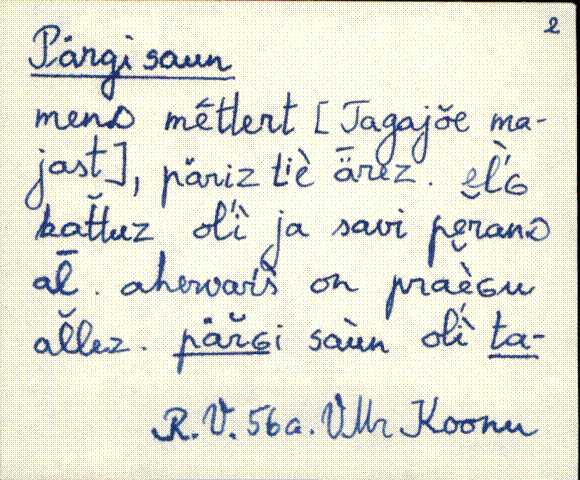 2
Pärgi saun
menD mêtlert [Tagajõe ma-
jast], päriz tiè ǟrez. e̮l'G
kat̆tuz ol'ì ja savi pe̮ranD
al̄. ahervar's on praèGu
al̆lez. pär̆Gi saùn ol'ì ta-
R.V. 56a. VMr Koonu